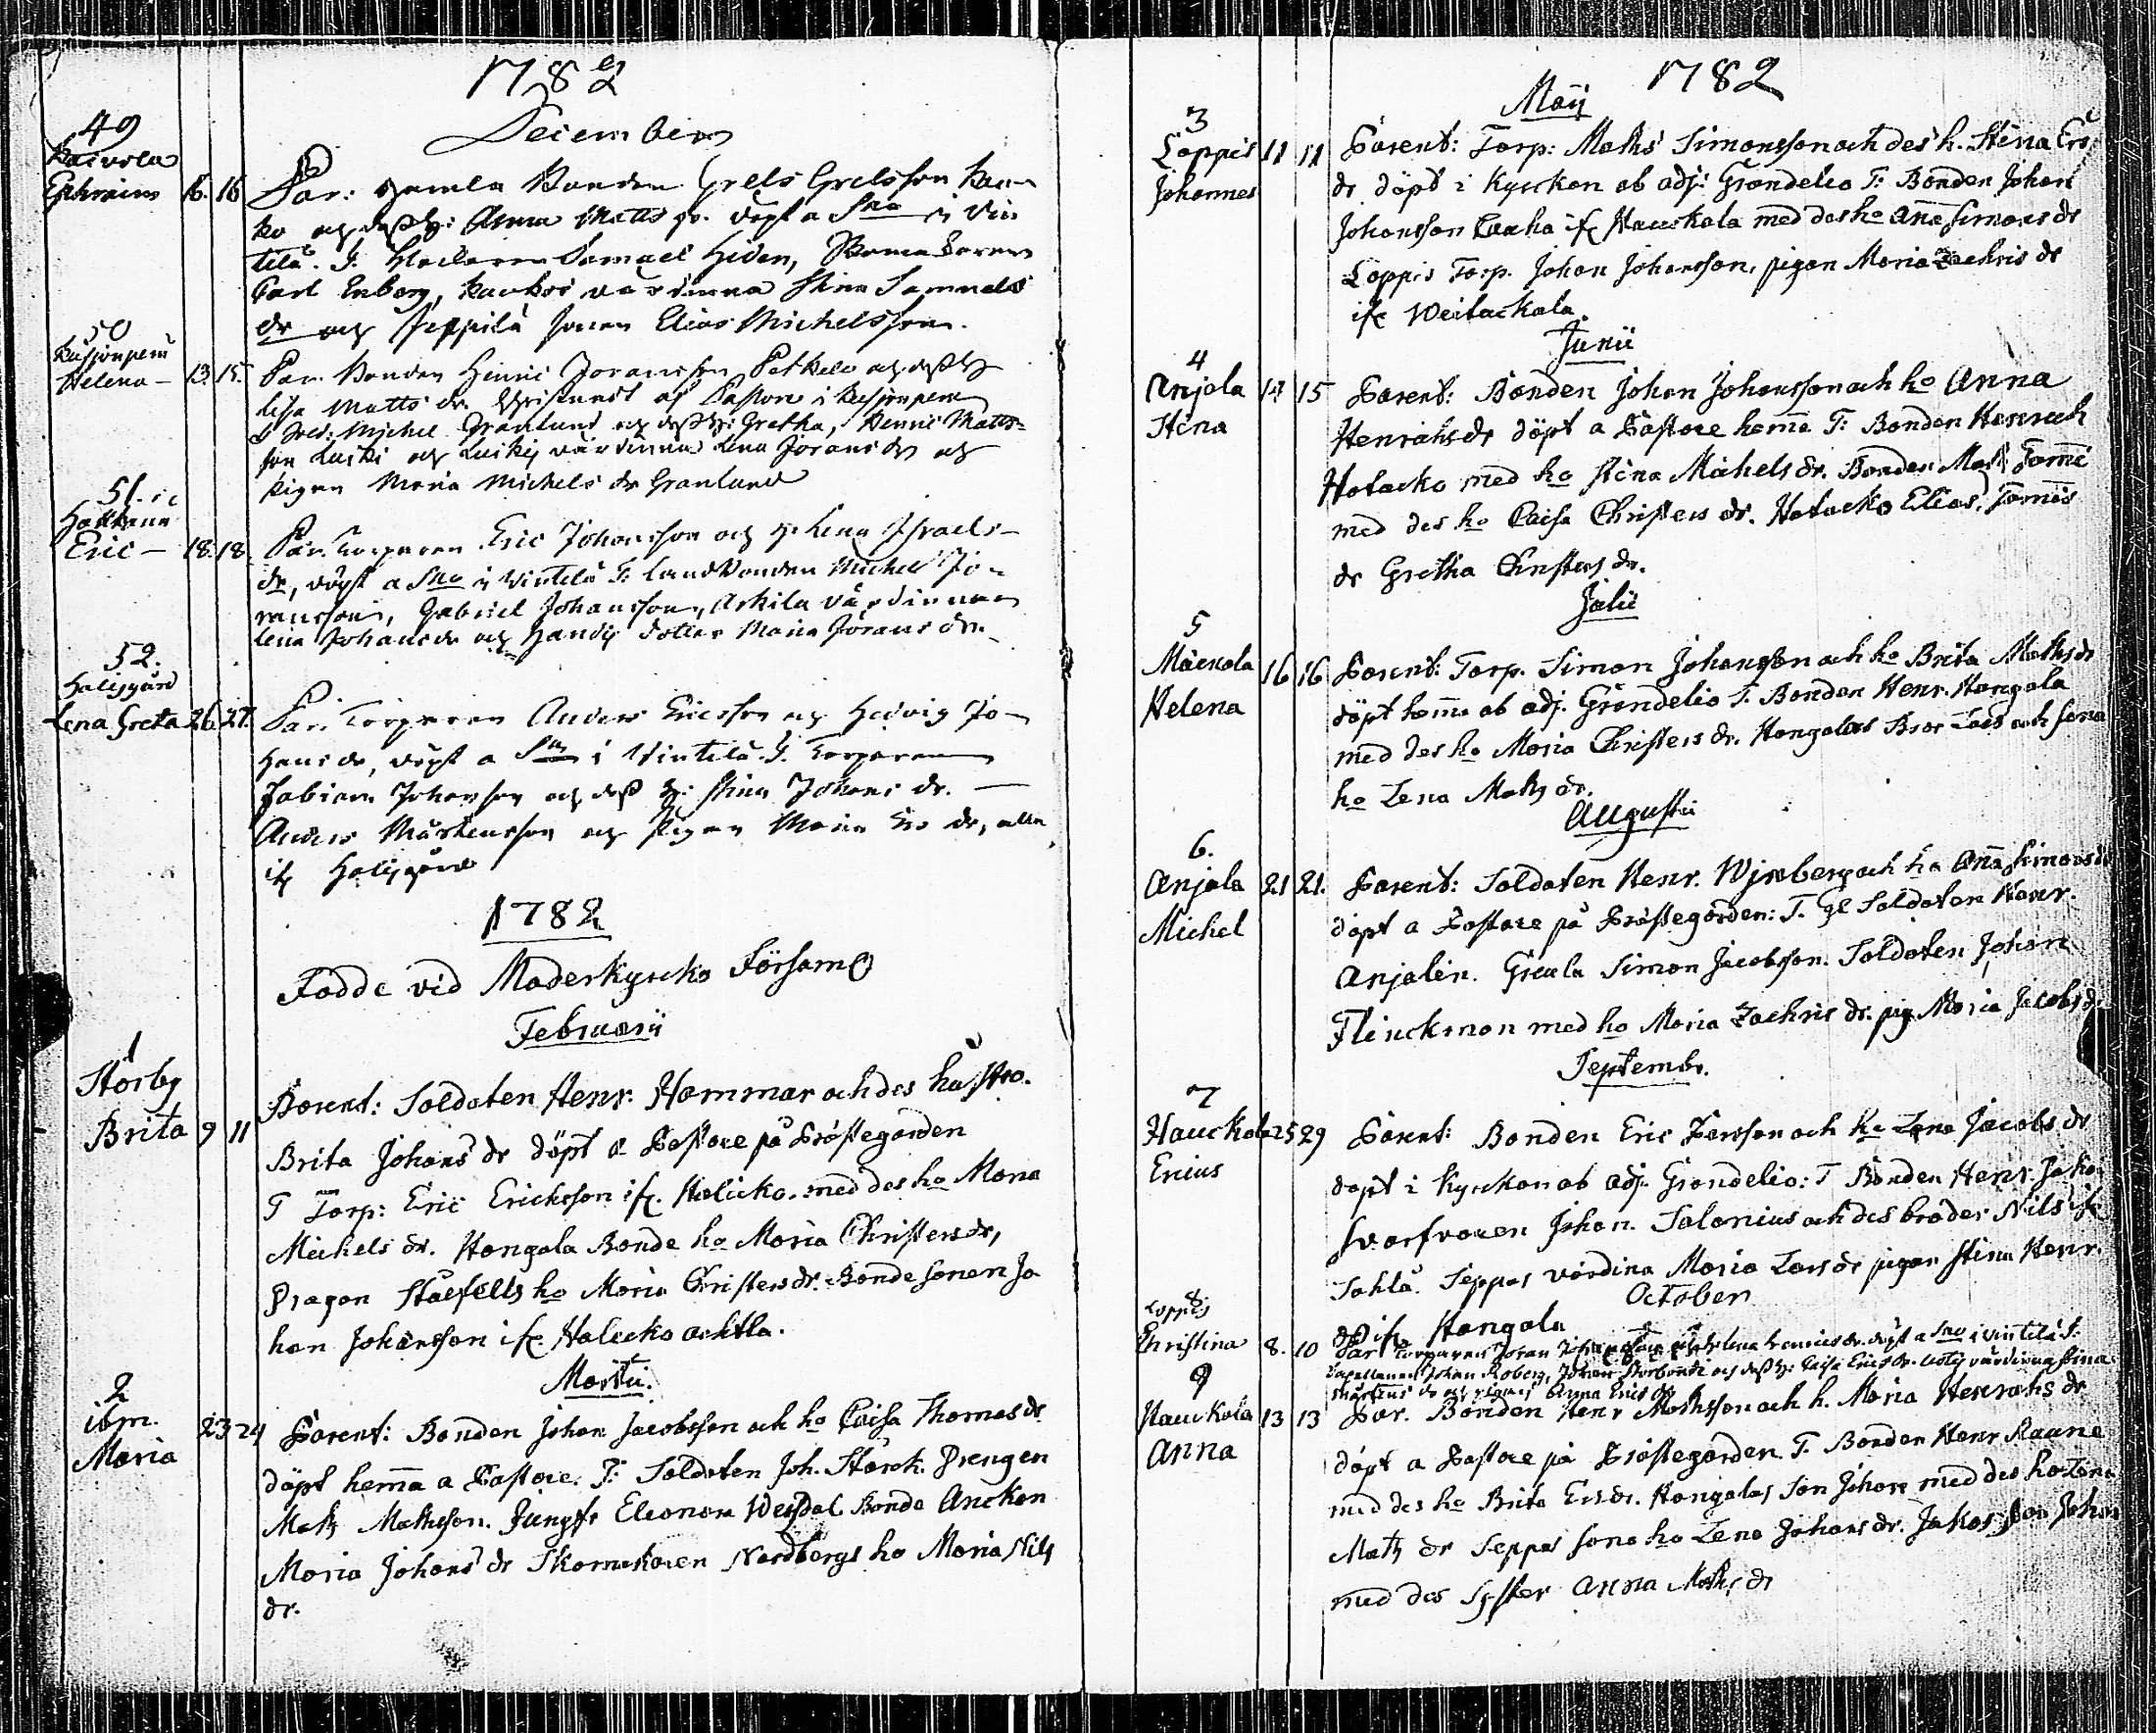 1782
December
49
Raivola
Ephraim 16. 16 Par: gamla Bonden Grels Grelsson Kau-
ko och dess h: Anna Matts dr. döpt a Sno i Vin
tilä. T. Klockaren Samuel Hiden,
Carl Enberg, Kaukoi värdinna Stina Samuels
dr och Seppilä sonen Elias Michelsson.
50
Helena — 13. 15. Par. Bonden Henric Joransson Petkele och dess h
Lisa Matts dr. af Pastore i
Michel Granlund och dess h: Gretha, Henric Matts-
son Luski och Luskis värdinna Lena Jorans dr och
Pigan Maria Michels dr Granlund
51.
Eric — 18. 18. Par. Torparen Eric Johansson och h. Lena Israels-
dr, döpt a Sno i Vintilä T. Landbonden Michel Jö-
ransson, Gabriel Johansson, Arkila värdinnan
Lena Johans dr och dotter Maria Jörans dr.
52.
Halisgård
Lena Greta 26 27. Par. Torparen Anders Ericsson och Hedvig Jo-
hans dr, döpt a Sno i Vintilä. T. Torparen
Fabian Johansson och dess h: Stina Johans dr. —
Anders Mårtensson och Pigan Maria Ers dr, alla
ifr Halisgård
1782
Födde vid Moderkyrko Församl
Februarii
1
Storby
Brita 9 11 Parent: Soldaten Henr. Hammar och des hustro.
Brita Johans dr döpt a Pastore på Prästegården
T Torp: Eric Ericksson ifr. Halicko. med des ho Maria
Michels dr. Hangala Bonde ho Maria Christers dr,
Dragon Stålfelts ho Maria Christers dr. Bonde sonen Jo
han Johansson ifr. Halicko achtla.
Martii.
2
ibm.
Maria 23 24 Parent: Bonden Johan Jacobsson och ho Caisa Thomas dr
döpt hemma a Pastore. T: Soldaten Joh. Starck. Drengen
Mats Mathsson. Jungfr Eleonora Wessdal Bonde Anckan
Maria Johans dr Skomakaren Nordbergs ho Maria Nils
dr.
1782
Maij
3
Loppis 11 11 Parent: Torp: Maths Simonsson och des h. Stina Ers
Johannes dr döpt i Kyrckan ab adj: Grondelio T: Bonden Johan
Johansson Cauha ifr Hauckala med des ho Anna Simons dr
Loppis Torp. Johan Johansson, pigan Maria Zachris dr
ifr Weitackala.
Junii
4
Anjala 14 15 Parent: Bonden Johan Johansson och ho Anna
Stina Henrichs dr döpt a Pastore hemma T: Bonden Henrich
Hatacko med ho Stina Michels dr. Bonden Mats Tomis
med des ho Caisa Christers dr. Hatacko Elias, Tomis
dr Gretha Christers dr.
Julii
5
Mäckola 16 16 Parent: Torp. Simon Johansson och ho Brita Maths dr
Helena döpt hemma ab adj. Gröndelio T. Bonden Henr. Hangala
med des ho Maria Christers dr. Hangalas Bror Lars och sona
ho Lena Mats dr.
Augusti
6.
Anjala 21 21. Parent: Soldaten Henr. Wijnberg och ho Anna Simons dr
Michel döpt a Pastore på Prästegården: T. gl Soldaten Henr.
Anjalin. Gieula Simon Jacobson. Soldaten Johan
Flinckman med ho Maria Zachris dr. pig. Maria Jacobs dr
Septembr.
7
Hauckola 25 29 Parent: Bonden Eric Persson och ho Lena Jacobs dr
Ericus döpt i Kyrckan ab adj. Grondelio: T Bonden Henr Jako
svarfvaren Johan. Salonius och des broder Nils ifr
Sahla. Seppas värdina Maria Lars dr pigan Stina Henr.
dr ifr Hangala
October
8.
Loppis
Christina 8. 10 Par Torparen Joran och Lena Henrics dr. döpt a Sno i Vintilä T:
Capellanen Johan Roberg, Johan Storbondi och dess h: Caisa Erics dr. värdinna Stina
Mårtens dr och pigan Anna Erics dr
9
Hauckola 13 13 Par. Bonden Henr Mathsson och h. Maria Henrichs dr
Anna döpt a Pastore på Prästegården T. Bonden Henr Raune
med des ho Brita Ersdr. Hangalas Son Johan med des ho Lena
Mats dr Seppas sona ho Lena Johans dr. Jakos son Johan
med des Syster Anna Maths dr